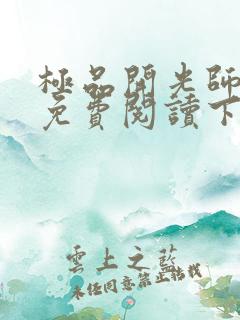 極品開光師
免費閱讀下
雲上之藍
未经同意禁止转载